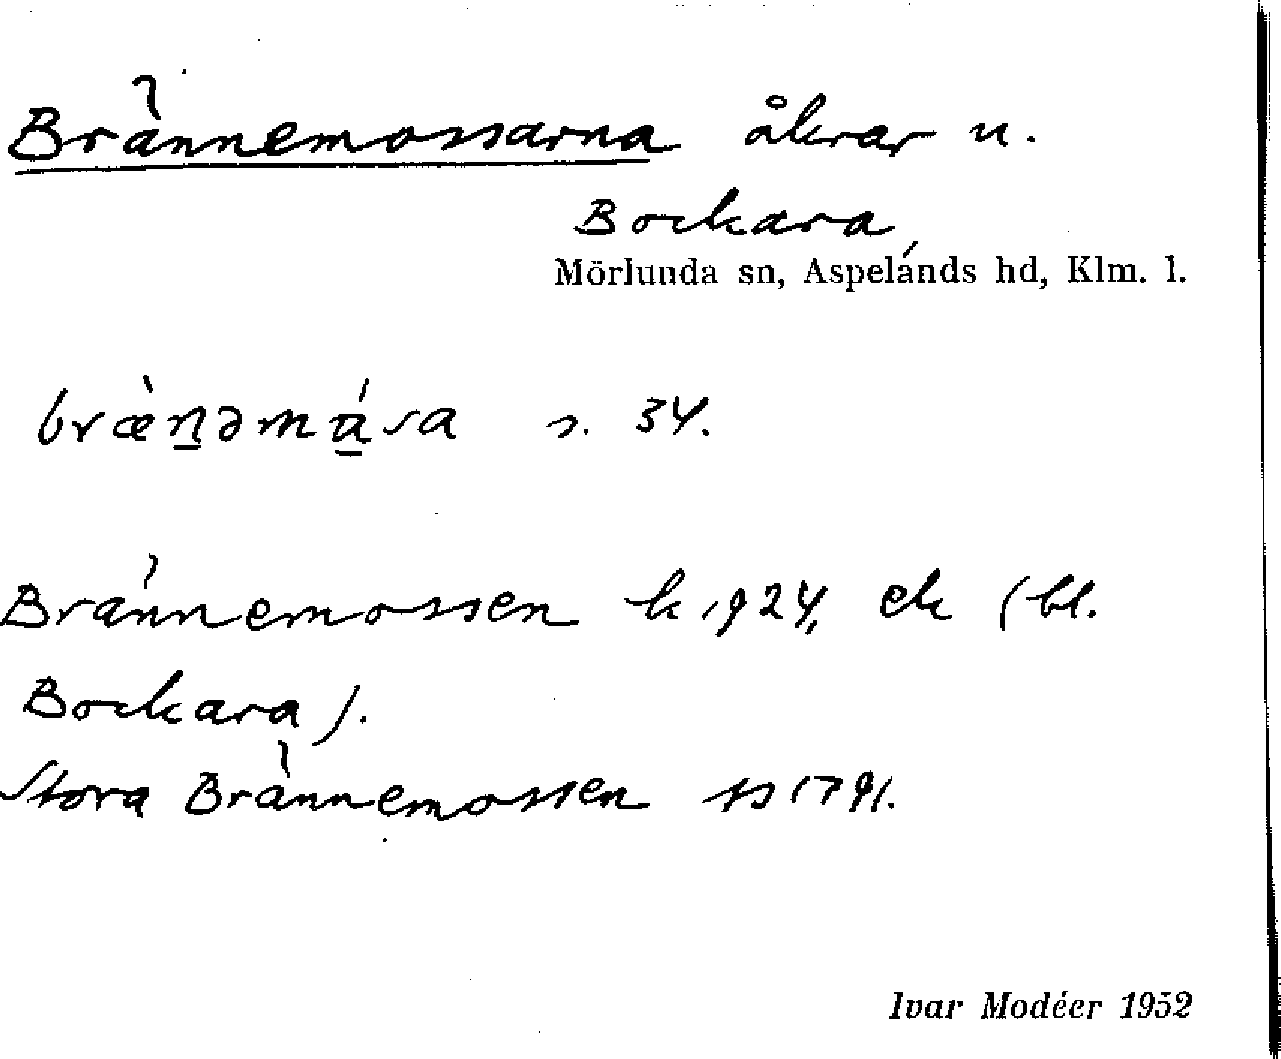 Brännemossarna åkrar u.
Bockara,
Mörlunda sn, Aspelands hd, Klm. l.
bræ̀n̲əmá̲sa s. 34.
Brännemossen k 1924, ek (bl.
Bockara).
Stora Brännemossen ss 1791.
Ivar Modéer 1952